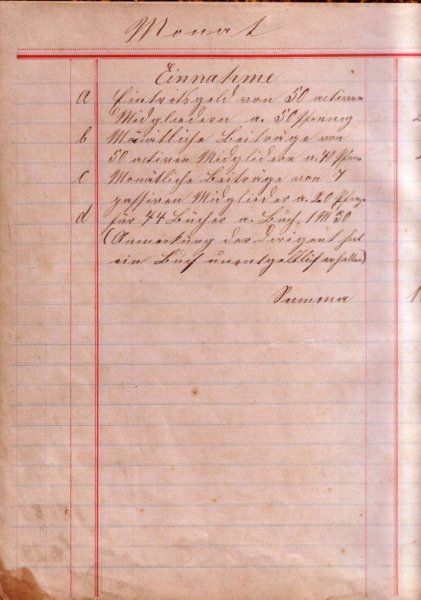 Monat
Einnahme
a Eintrittsgeld von 50 activen
Midgliedern a. 50 Pfennig
b Monatliche Beiträge von
50 activen Midglidern a. 40 Pfen.
c Monatliche Beiträge von 7
passiven Midglieder a. 20 Pfeng.
d für 44 Bücher a. Buch 1M 30
(Anmerkung der Dirigent hat
ein Buch unentgeltlich erhalten)
Summa